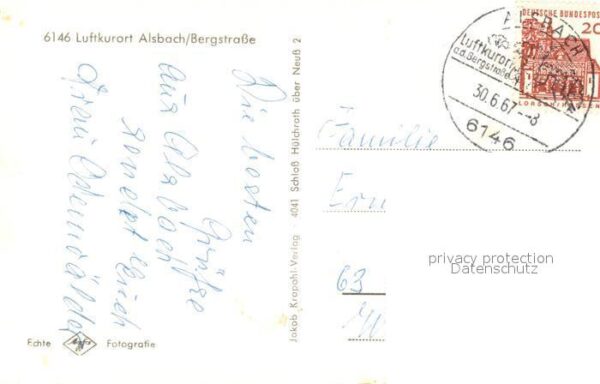 6146 Luftkurort Alsbach/Bergstraße
Die besten
Grüße
aus Alsbach
sendet Euch
Frau Odenwälder
Echte Agfa Fotografie
Jakob Krapohl-Verlag · 4041 Schloß Hülchrath über Neuß 2
ALSBACH
Luftkurort
a.d. Bergstraße
30.6.67-8
6146
DEUTSCHE BUNDESPOST
20
LORSCH/HESSEN
Familie
Ern
63
privacy protection
Datenschutz